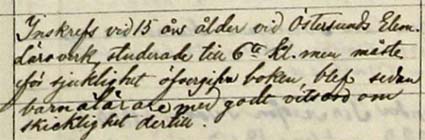 Inskrefs vid 15 års ålder vid Östersunds Elem.
läroverk, studerade till 6te kl. men måste
för sjuklighet öfvergifva boken blef sedan
barnalärare med goda vitsord om
skicklighet dertill.